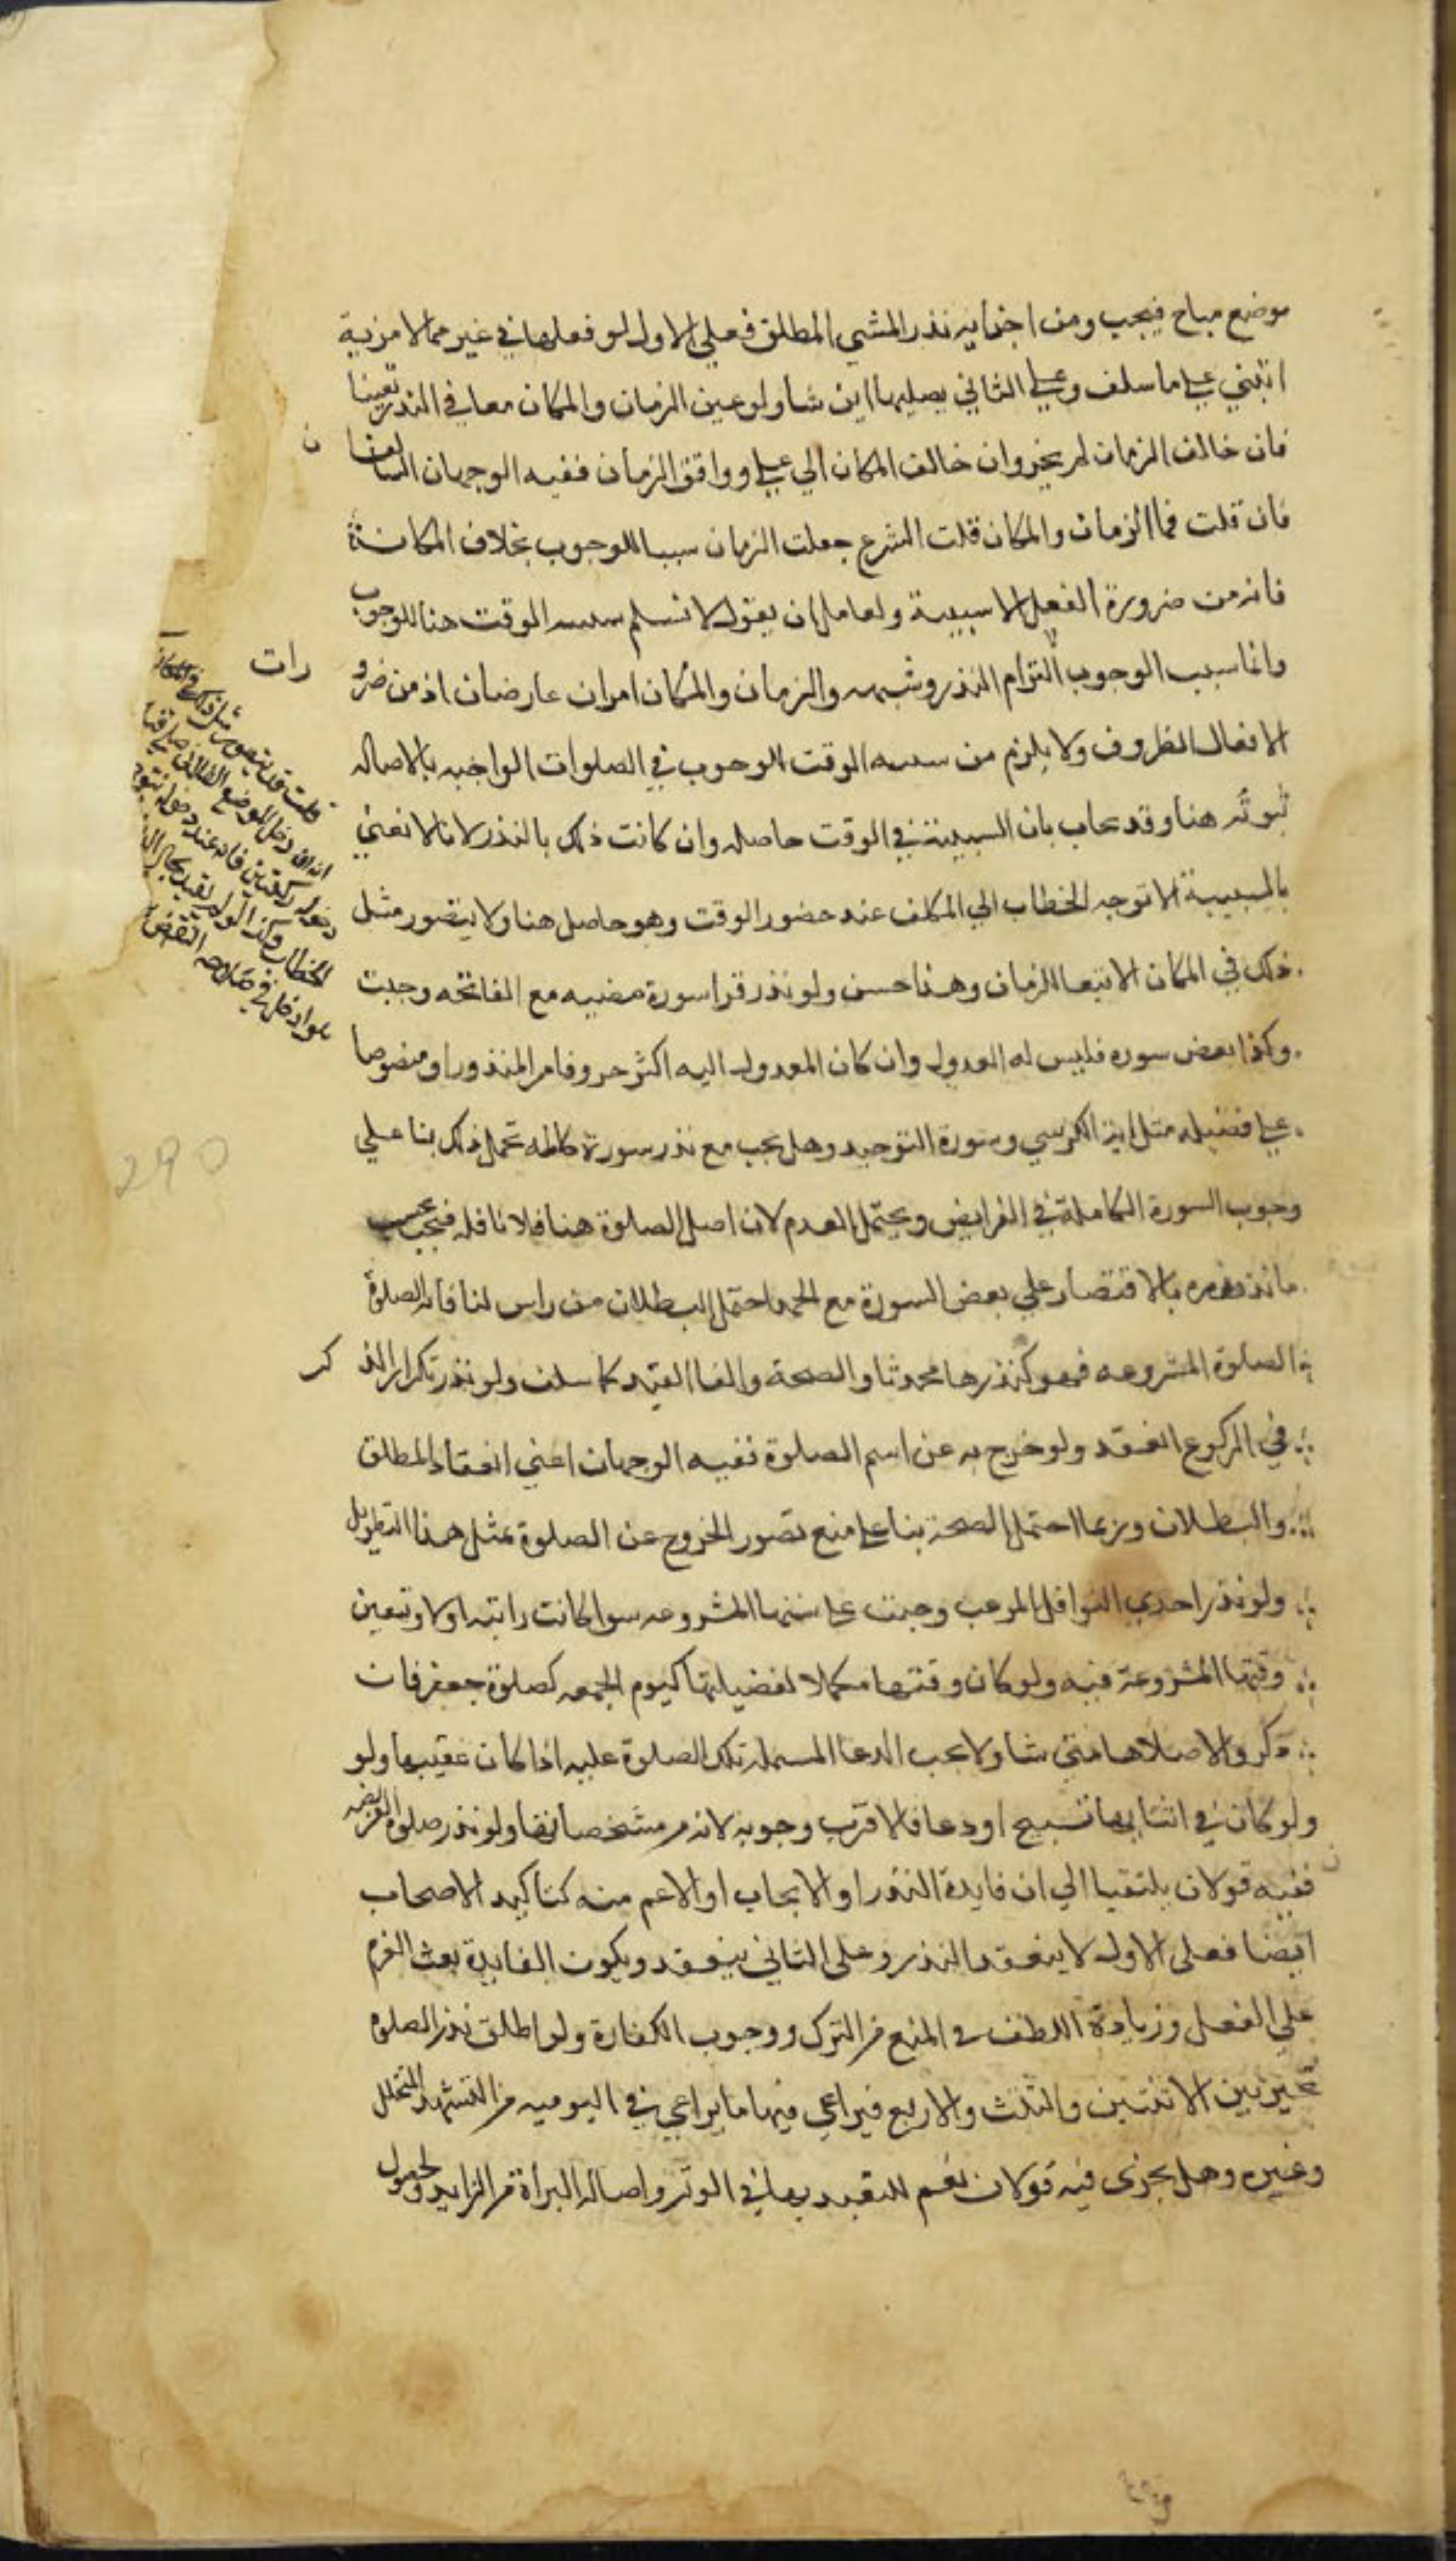 موضع مباح فيجب ومن اجزايه نذر المشي المطلق فعلي الاول لو فعلها في غير مما لا مزية
انبني علي ما سلف وعلي الثاني يصليها اين شا ولو عين الزمان والمكان معا في النذر تعينا
فان خالف الزمان لم يجز وان خالف المكان الي ووافق الزمان ففيه الوجهان السالفان
فان قلت فما الزمان والمكان قلت الشرع جعلت الزمان سببا للوجوب بخلاف المكان
فانه من ضرورة الفعل لا سببية ولقايل ان يقول لا نسلم سببيه الوقت هنا للوجوب
وانما سبب الوجوب التزام النذر وشبهه والزمان والمكان امران عارضان اذ من ضرو رات
الافعال الظروف ولا يلزم من سببيه الوقت الوجوب في الصلوات الواجبه بالاصاله
ثبوته هنا وقد يجاب بان السببية في الوقت حاصله وان كانت ذلك بالنذر لانا لا نعني
بالسببية الا توجه الخطاب الي المكلف عند حضور الوقت وهو حاصل هنا ولا يتصور مثل
ذلك في المكان الا تبعا للزمان وهذا حسن ولو نذر قراسورة معينه مع الفاتحه وجبت
وكذا بعض سوره فليس له العدول وان كان المعدول اليه اكثر حروفا من المنذور او منصوصا
علي فضيله مثل اية الكرسي وسورة التوحيد وهل يجب مع نذر سورة كامله تحمل ذلك بنا علي
وجوب السورة الكاملة في الفرايض ويحتمل العدم لان اصل الصلوة هنا نافله فيجب بحسب
ما نذر بالاقتصار علي بعض السورة مع الحمد احتمل البطلان من راس لمنافاته الصلوة
الصلوة المشروعه فهو كنذرها محدثا والصحة والغا القيد كما سلف ولو نذر تكرار الذ كر
في الركوع انعقد ولو خرج به عن اسم الصلوة ففيه الوجهان اعني انعقاد المطلق
والبطلان وربما احتمل الصحة بنا علي منع تصور الخروج عن الصلوة بمثل هذا التطويل
ولو نذر احدي النوافل المرغب وجبت علي سننها المشروعه سوا كانت راتبه او لا وتعين
وقتها المشروعة فيه ولو كان وقتها مكملا لفضيلتها كيوم الجمعه كصلوة جعفر فان
ذكر والا صلاها متي شا ولا يجب الدعا تلك الصلوة عليه اذا كان عقيبها ولو
ولو كان في اثنايها تسبيح او دعا فالاقرب وجوبه لانه مشخصاتها ولو نذر صلوة الفريضه
ففيه قولان يلتفتا الي ان فايدة النذر او الايجاب او الاعم منه كتاكيد الاصحاب
ايضا فعلي الاول لا ينعقد النذر وعلي الثاني ينعقد ويكون الفايدة بعث العزم
علي الفعل وزيادة اللطف في المنع من الترك ووجوب الكفارة ولو اطلق نذر الصلوة
تخير بين الاثنتين والثلث والاربع فيراعي فيها ما يراعي في اليوميه من التشهد والتحلل
وغيره وهل يجزي فيه قولان نعم للتعبد بها في الوتر واصاله البراة من الزايد ولحصول
قلت قد يتصور مثل ذلك في المكان
انه ان دخل الموضع الفلاني صلي فيها
ركعتين فانه عند دخوله يتوجه
الخطاب وكذا
290